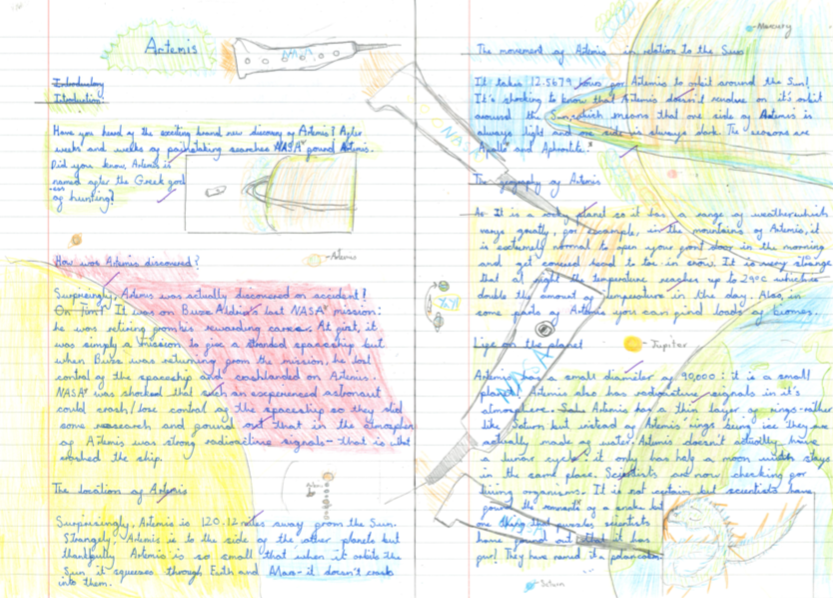 Artemis
NASA
Introductory
Introduction
Have you heard of the exciting brand new discovery of Artemis? After
weeks and weeks of painstaking searches NASA found Artemis.
Did you know Artemis is
named after the Greek god
of hunting?
Artemis
How was Artemis discovered?
Surprisingly, Artemis was actually discovered on accident!
It was on Buzz Aldrin's last NASA mission:
he was retiring from his rewarding career. At first, it
was simply a mission to give a stranded spaceship but
when Buzz was returning from the mission, he lost
control of the spaceship and crashlanded on Artemis.
NASA was shocked that such an experienced astronaut
could crash/lose control of the spaceship so they did
some research and found out that in the atmosphere
of Artemis was strong radioactive signals - that is what
crashed the ship.
The location of Artemis
Surprisingly, Artemis is 120.12 miles away from the Sun.
Strangely, Artemis is to the side of the other planets but
thankfully Artemis is so small that when it orbits the
Sun it squeezes through Earth and Mars - it doesn't crash
into them.
Mercury
The movement of Artemis in relation to the Sun
It takes 12.5679 hours for Artemis to orbit around the Sun!
It's shocking to know that Artemis doesn't revolve on it's orbit
around the Sun, which means that one side of Artemis is
always light and one side is always dark. The reasons are
Apollo and Aphrodite.
NASA
The geography of Artemis
As It is a rocky planet so it has a range of weather which
vary greatly, for example, in the mountains of Artemis, it
is extremely normal to open your front door in the morning
and get covered head to toe in snow. It is very strange
that at night the temperature reaches up to 29°C which is
double the amount of temperature in the day. Also, in
some parts of Artemis you can find loads of biomes.
Life on the planet
Jupiter
NASA
Artemis has a small diameter of 90,000: it is a small
planet. Artemis also has radioactive signals in it's
atmosphere. Artemis has a thin layer of rings rather
like Saturn but instead of Artemis' rings being ice they are
actually made of water. Artemis doesn't actually have
a lunar cycle: it only has half a moon which stays
in the same place. Scientists are now checking for
living organisms. It is not certain but scientists have
found the remnants of a snake but
one thing that puzzles scientists
have found out that it has
fur! They have named it a polarcobra.
Saturn